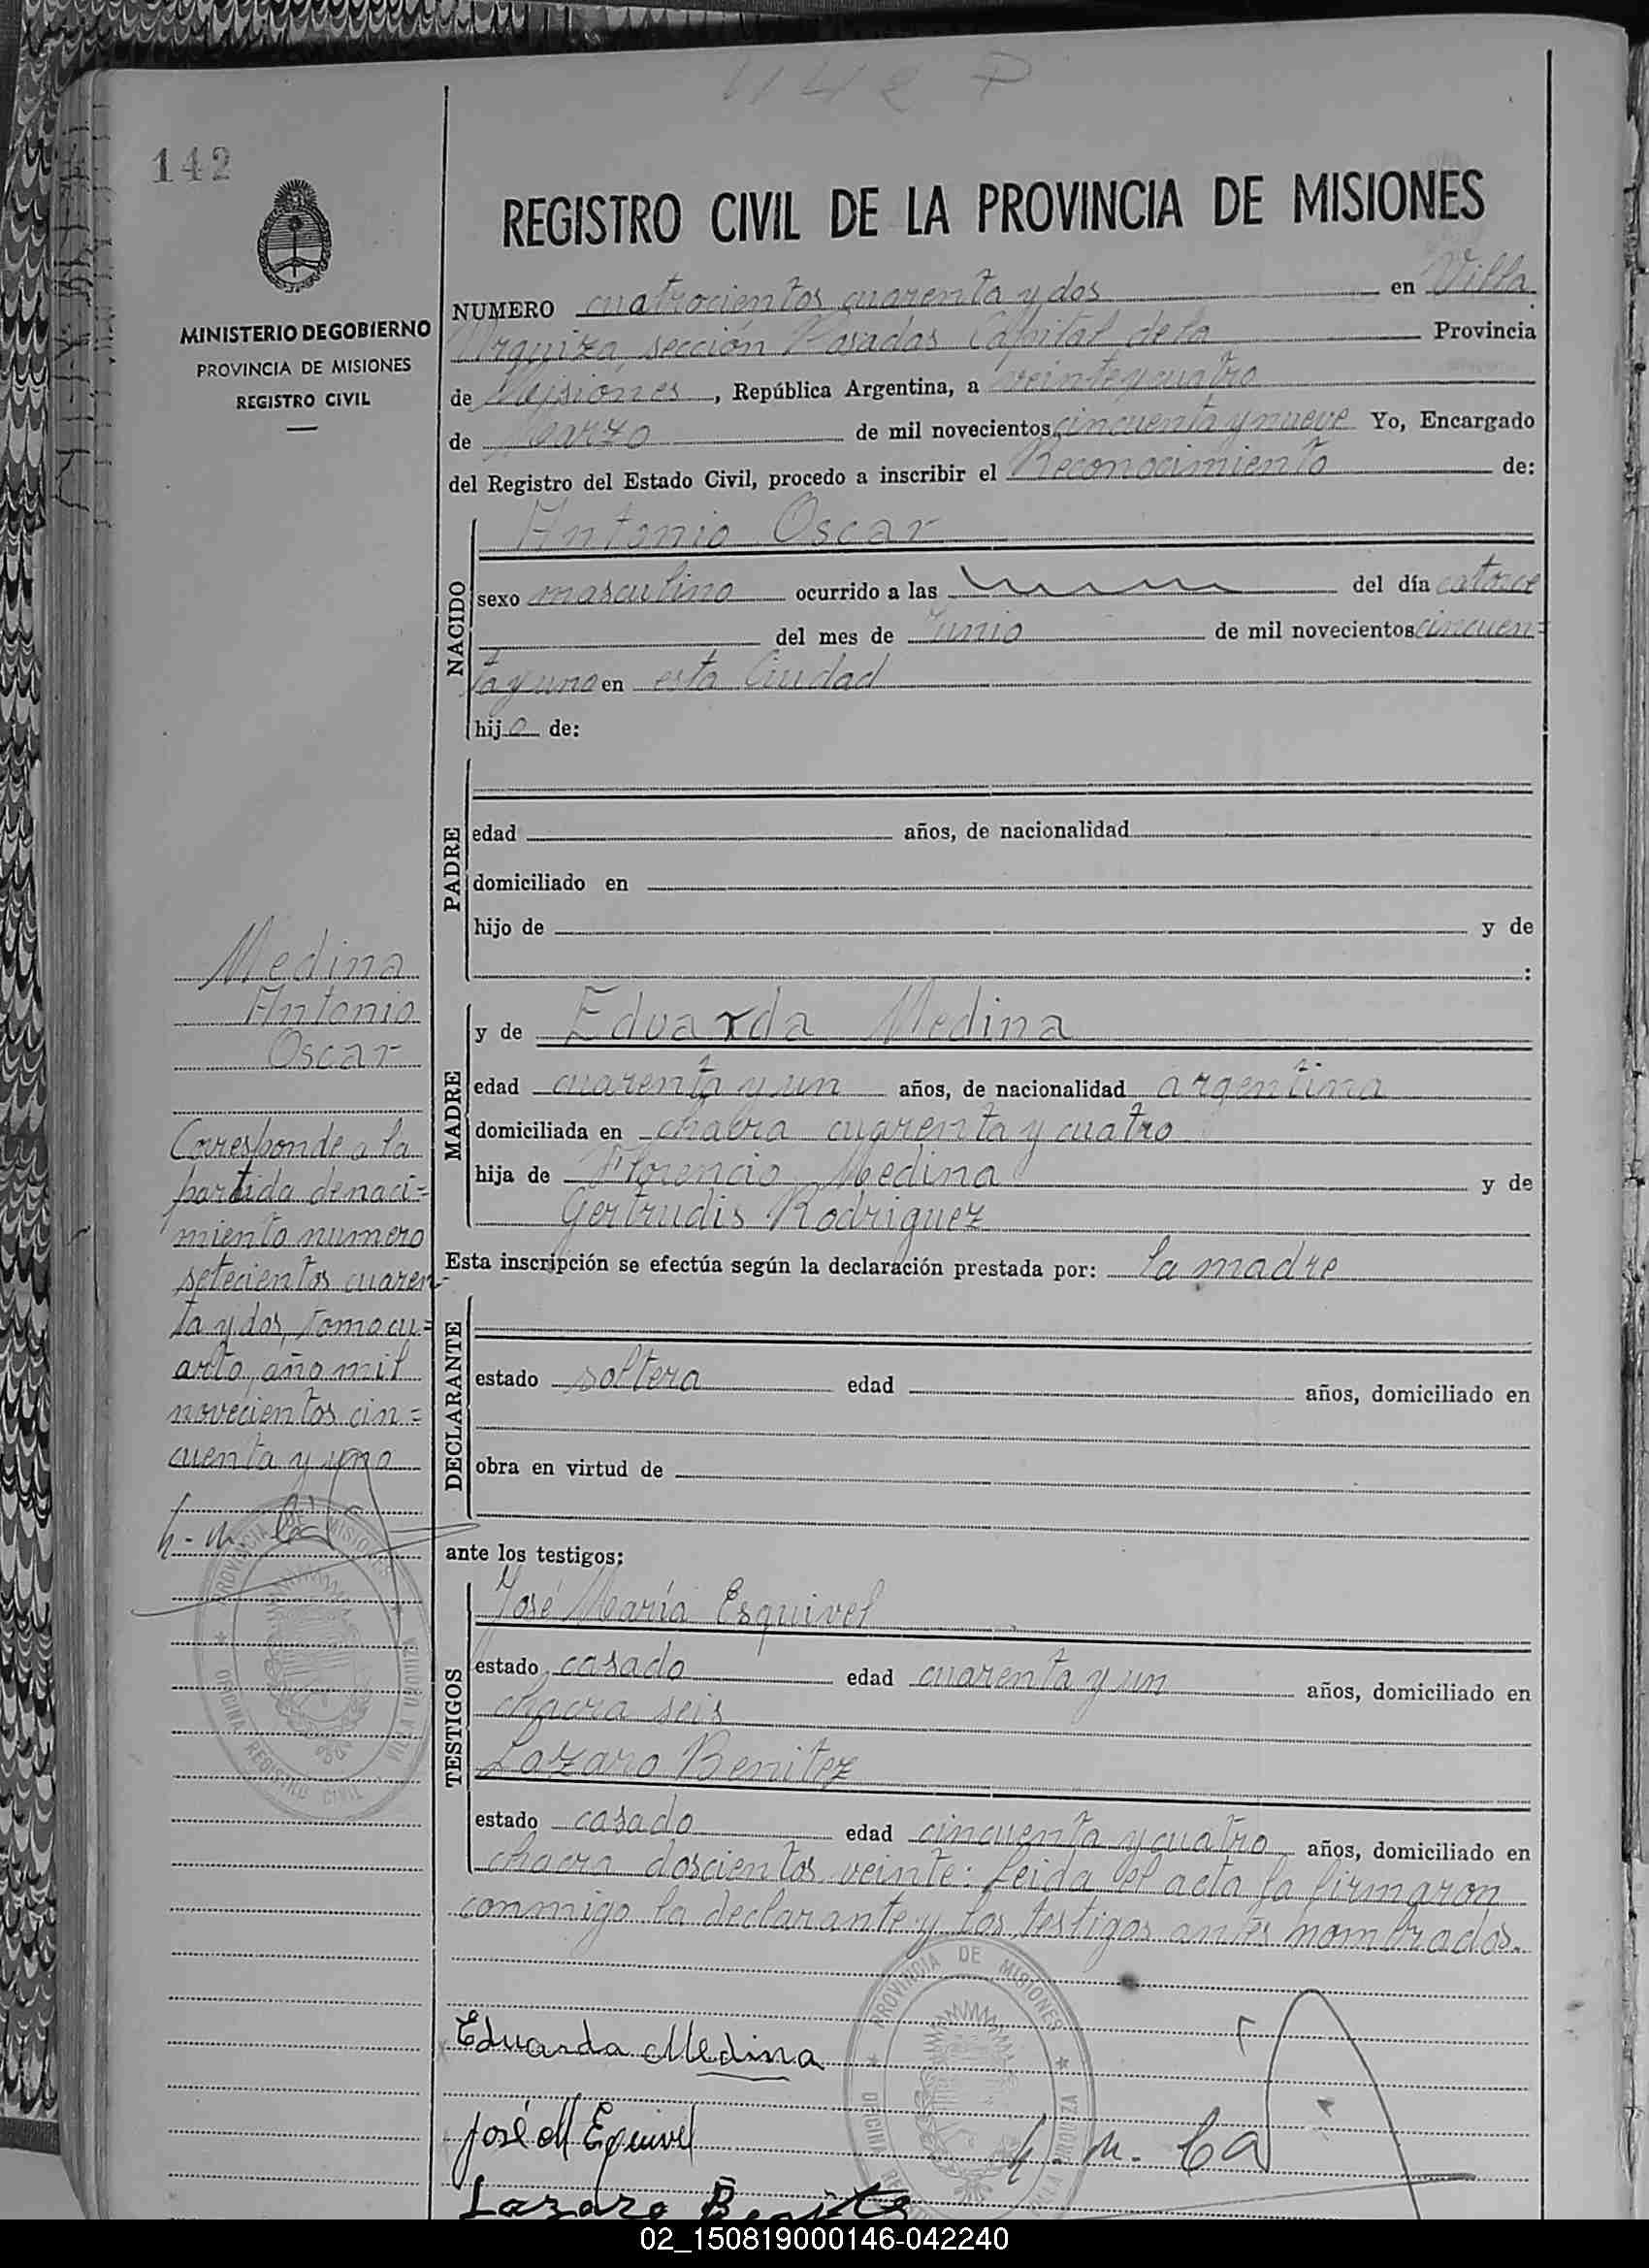 442 P
142
REGISTRO CIVIL DE LA PROVINCIA DE MISIONES
MINISTERIO DE GOBIERNO
PROVINCIA DE MISIONES
REGISTRO CIVIL
NUMERO cuatrocientos cuarenta y dos en Villa
Urquiza sección Posadas Capital de la Provincia
de Misiones, República Argentina, a veinte y cuatro
de Marzo de mil novecientos cincuenta y nueve Yo, Encargado
del Registro del Estado Civil, procedo a inscribir el Reconocimiento de:
NACIDO
Antonio Oscar
sexo masculino ocurrido a las del día catorce
del mes de Junio de mil novecientos cincuen=
ta y uno en esta Ciudad
hijo de:
PADRE
edad años, de nacionalidad
domiciliado en
hijo de y de
:
MADRE
y de Eduarda Medina
edad cuarenta y un años, de nacionalidad argentina
domiciliada en chacra cuarenta y cuatro
hija de Florencio Medina y de
Gertrudis Rodriguez
Esta inscripción se efectúa según la declaración prestada por: la madre
DECLARANTE
estado soltera edad años, domiciliado en
obra en virtud de
ante los testigos:
TESTIGOS
José María Esquivel
estado casado edad cuarenta y un años, domiciliado en
chacra seis
Lazaro Benitez
estado casado edad cincuenta y cuatro años, domiciliado en
chacra doscientos veinte: Leida el acta la firmaron
conmigo la declarante y los testigos antes nombrados.
Eduarda Medina
José M Equivel
Lazaro Benite
Medina
Antonio
Oscar
Corresponde a la
partida de naci=
miento numero
setecientos cuaren-
ta y dos, tomo cu=
arto, año mil
novecientos cin=
cuenta y uno
PROVINCIA DE MISIONES
OFICINA REGISTRO CIVIL VILLA URQUIZA
PROVINCIA DE MISIONES
OFICINA VILLA URQUIZA
02_150819000146-042240